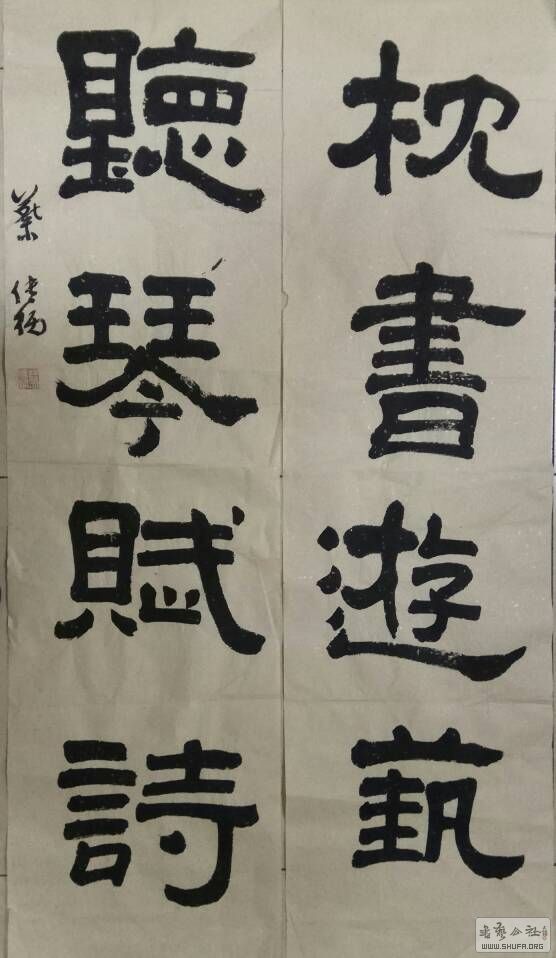 枕書遊藝
聽琴賦詩
葉
书艺公社
WWW.SHUFA.ORG